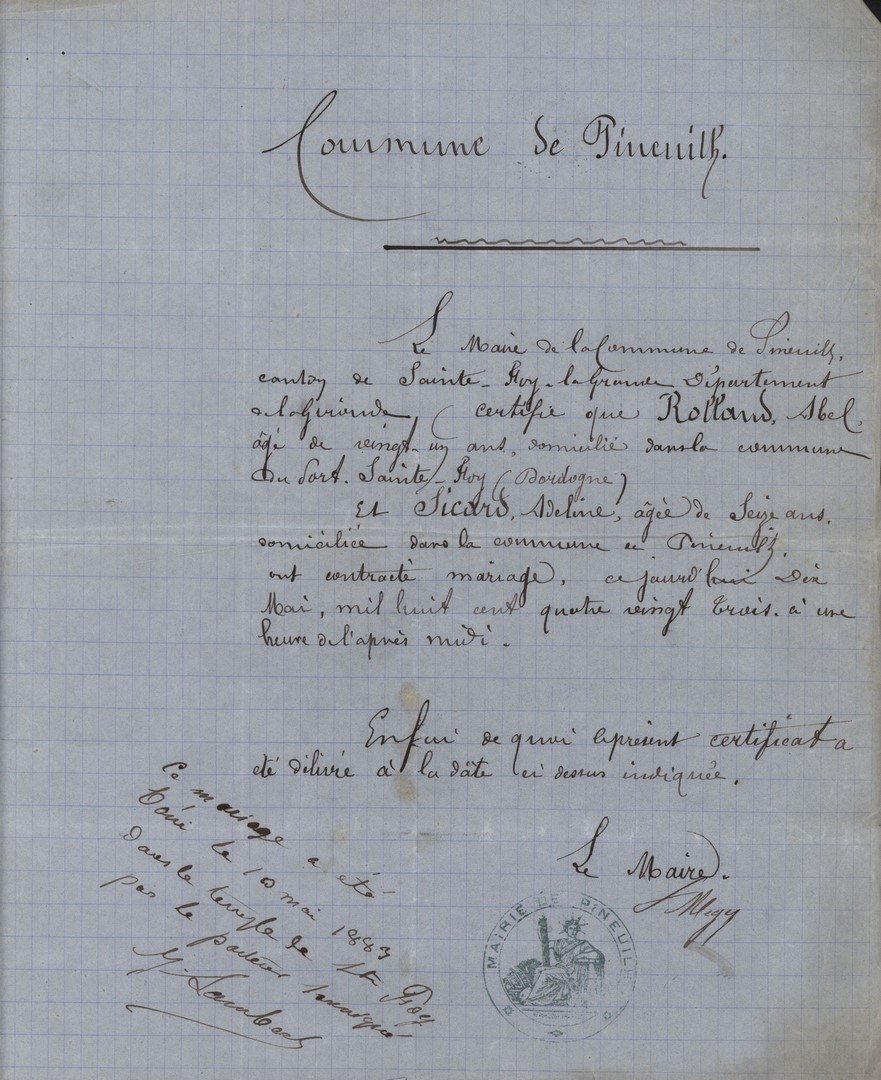 Commune de Pineuilh.
Le Maire de la Commune de Pineuilh,
canton de Sainte-Foy-la-Grande Département
de la Gironde, certifie que Rolland, Abel,
âgé de vingt-un ans, domicilié dans la commune
du Port-Sainte-Foy (Dordogne)
Et Sicard, Adeline, âgée de Seize ans,
domiciliée dans la commune de Pineuilh,
ont contracté mariage, ce jourd'hui Dix
Mai, mil huit cent quatre vingt trois. à une
heure de l'après midi.
En foi de quoi le présent certificat a
été délivré à la dâte ci dessus indiquée.
Le Maire.
Ce mariage a été
béni le 10 mai 1883
dans le temple de Ste Foy
par le pasteur soussigné
MAIRIE DE PINEUILH